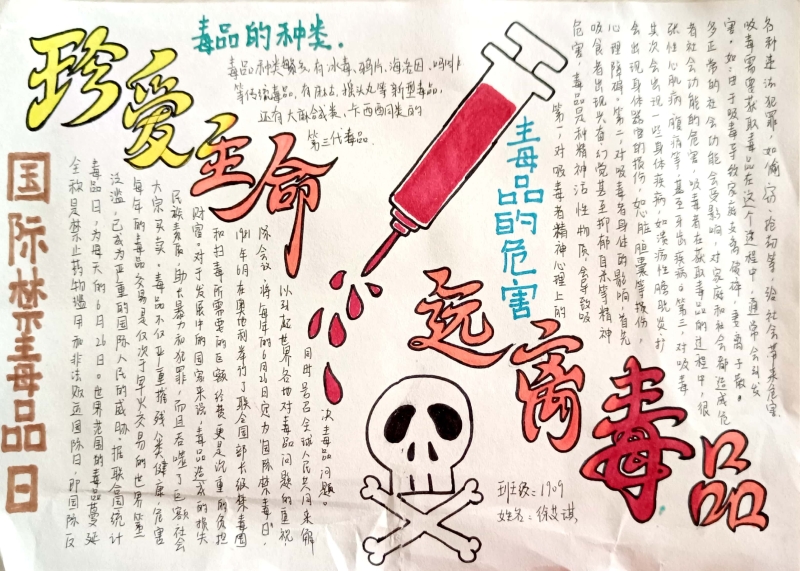 珍爱生命
远离毒品
国际禁毒品日
毒品的种类.
毒品种类繁多,有冰毒、鸦片、海洛因、吗啡
等传统毒品,有麻古、摇头丸等新型毒品,
还有大麻合成类、卡西酮类的
第三代毒品.
毒品的危害
第一,对吸毒者精神心理上的
危害,毒品是种精神活性物质,会导致吸
吸食者出现兴奋幻觉甚至抑郁自杀等精神
心理障碍。第二,对吸毒者身体的影响,首先
会出现身体器官的损伤,如心脏胆囊等损伤,
其次会出现一些身体疾病,如溃疡性膀胱炎、扩
张性心肌病、腹痛等,甚至牙齿疾病。第三,对吸毒
者社会功能的危害,吸毒者在获取毒品的过程中,很
多正常的社会功能会受影响,对家庭和社会都造成危
害,如由于吸毒导致家庭支离破碎,妻离子散。
吸毒需要获取毒品在这个过程中,通常会引发
各种违法犯罪,如偷窃、抢劫等,给社会带来危害
全称是禁止药物滥用和非法贩运国际日,即国际反
毒品日,为每天的6月26日。世界范围的毒品蔓延
泛滥,已成为严重的国际人民的威胁,据联合国统计
每年的毒品交易是仅次于军火交易的世界第二
大宗买卖,毒品不仅严重摧残人类健康,危害
民族素质,助长暴力和犯罪,而且吞噬了巨额社会
财富。对于发展中的国家来说,毒品造成的损失
和扫毒所需要的巨额经费更是沉重的负担
1987年6月在奥地利举行了联合国部长级禁毒国
际会议,将每年的6月26日定为"国际禁毒日",
以引起世界各地对毒品问题的重视,
同时号召全球人民共同来解
决毒品问题。
班级:1909
姓名:徐艾琪